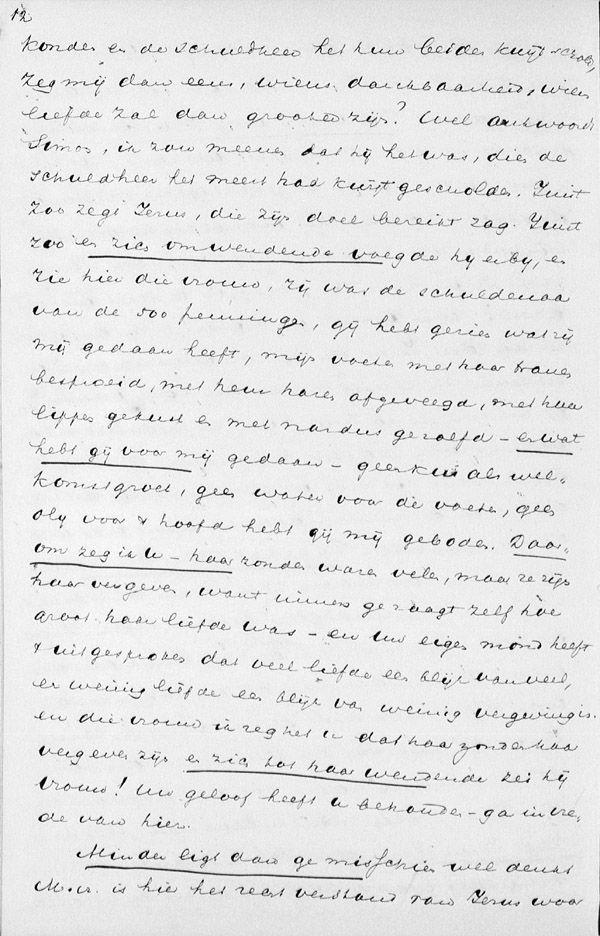 12
konden en de schuldheer het hun beiden kwijt schold,
zeg mij dan eens, wiens dankbaarheid, wiens
liefde zal dan grooter zijn? Wel antwoordt
Simon, ik zou meenen dat hij het was, dien de
schuldheer het meest had kwijtgescholden. Juist
zoo zegt Jezus, die zijn doel bereikt zag. Juist
zoo en zich omwendende voegde hy erby, en
zie hier die vrouw, zij was de schuldenaa
van de 500 penningen, gij hebt gezien wat zij
mij gedaan heeft, mijn voeten met haar tranen
besproeid, met heur haren afgeveegd, met haar
lippen gekust en met nardus gezalfd – en wat
hebt gij voor mij gedaan – geen kus als wel-
komstgroet, geen water voor de voeten, geen
oly voor 't hoofd hebt gij mij geboden. Daar-
om zeg ik U – haar zonden waren velen, maar ze zijn
haar vergeven, want immers ge zaagt zelf hoe
groot haar liefde was – en Uw eigen mond heeft
't uitgesproken dat veel liefde een blijk van veel,
en weinig liefde een blijk van weinig vergeving is.
en die vrouw ik zeg het u dat haar zonden haar
vergeven zijn en zich tot haar wendende zei hij
vrouw! Uw geloof heeft u behouden – ga in vre-
de van hier.
Minder ligt dan ge misschien wel denkt
M. is hier het recht verstand van Jezus woor